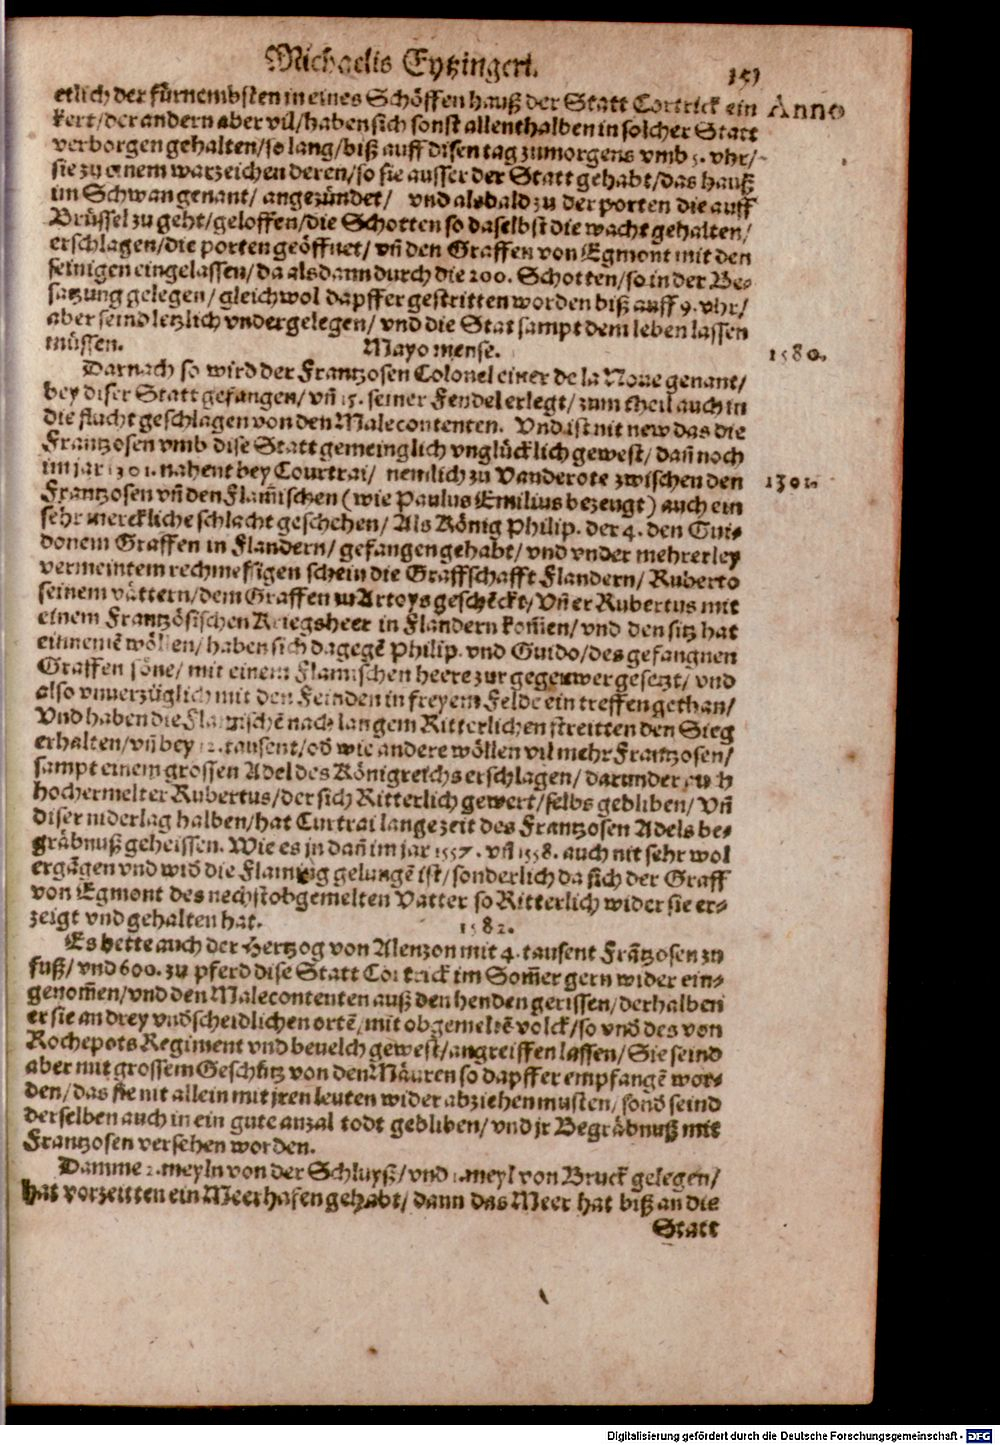 Michaelis Eytzingeri. 151
etlich der fürnembsten in eines Schöffen hauß der Statt Cortrick ein Anno
kert/ der andern aber vil/ haben sich sonst allenthalben in solcher Statt
verborgen gehalten/ so lang/ biß auff disen tag zumorgens vmb 5. vhr/
sie zu einem warzeichen deren/ so sie ausser der Statt gehabt/ das hauß
im Schwan genant/ angezündet/ vnd alsbald zu der porten die auff
Brüssel zu geht/ geloffen/ die Schotten so daselbst die wacht gehalten/
erschlagen/ die porten geöffnet/ vñ den Graffen von Egmont mit den
seinigen eingelassen/ da alsdann durch die 200. Schotten/ so in der Be-
satzung gelegen/ gleichwol dapffer gestritten worden biß auff 9. vhr/
aber seind letzlich vndergelegen/ vnd die Stat sampt dem leben lassen
müssen. Mayo mense. 1580.
Darnach so wird der Frantzosen Colonel einer de la Noue genant/
bey diser Statt gefangen/ vñ 15. seiner Fendel erlegt/ zum theil auch in
die flucht geschlagen von den Malecontenten. Vnd ist nit new das die
Frantzosen vmb dise Statt gemeinglich vnglücklich gewest/ dañ noch
im jar 1301. nahent bey Courtrai/ nemlich zu Vanderote zwischen den 1301.
Frantzosen vñ den Flam̃ischen (wie Paulus Emilius bezeugt) auch ein
sehr merckliche schlacht geschehen/ Als König Philip. der 4. den Gui-
donem Graffen in Flandern/ gefangen gehabt/ vnd vnder mehrerley
vermeintem rechmessigen schein die Graffschafft Flandern/ Ruberto
seinem vättern/ dem Graffen zu Artoys geschẽckt/ Vñ er Rubertus mit
einem Frantzösischen Kriegsheer in Flandern kom̃en/ vnd den sitz hat
einnemẽ wöllen/ haben sich dagegẽ Philip. vnd Guido/ des gefangnen
Graffen söne/ mit einem Flam̃ischen heere zur gegenwer gesetzt/ vnd
also vnuerzüglich mit den Feinden in freyem Felde ein treffen gethan/
Vnd haben die Flam̃ischẽ nach langem Ritterlichen streitten den Sieg
erhalten/ vñ bey 12. tausent/ od̃ wie andere wöllen vil mehr Frantzosen/
sampt einem grossen Adel des Königreichs erschlagen/ darunder auch
hochermelter Rubertus/ der sich Ritterlich gewert/ selbs gebliben/ Vñ
diser niderlag halben/ hat Curtrai lange zeit des Frantzosen Adels be-
gräbnuß geheissen. Wie es jn dañ im jar 1557. vñ 1558. auch nit sehr wol
ergãgen vnd wid̃ die Flaming gelungẽ ist/ sonderlich da sich der Graff
von Egmont des nechstobgemelten Vatter so Ritterlich wider sie er-
zeigt vnd gehalten hat. 1582.
Es hette auch der Hertzog von Alenzon mit 4. tausent Frãtzosen zu
fuß/ vnd 600. zu pferd dise Statt Cortrick im Som̃er gern wider ein-
genom̃en/ vnd den Malecontenten auß den henden gerissen/ derhalben
er sie an drey vnd̃scheidlichen ortẽ/ mit obgemeltẽ volck/ so vnd̃ des von
Rochepots Regiment vnd beuelch gewest/ angreiffen lassen/ Sie seind
aber mit grossem Geschütz von den Mäuren so dapffer empfangẽ wor-
den/ das sie nit allein mit jren leuten wider abziehen musten/ sond̃ seind
derselben auch in ein gute anzal todt gebliben/ vnd jr Begräbnuß mit
Frantzosen versehen worden.
Damme 2. meyln von der Schluyß/ vnd 1. meyl von Bruck gelegen/
hat vorzeitten ein Meerhafen gehabt/ dann das Meer hat biß an die
Statt
Digitalisierung gefördert durch die Deutsche Forschungsgemeinschaft - DFG